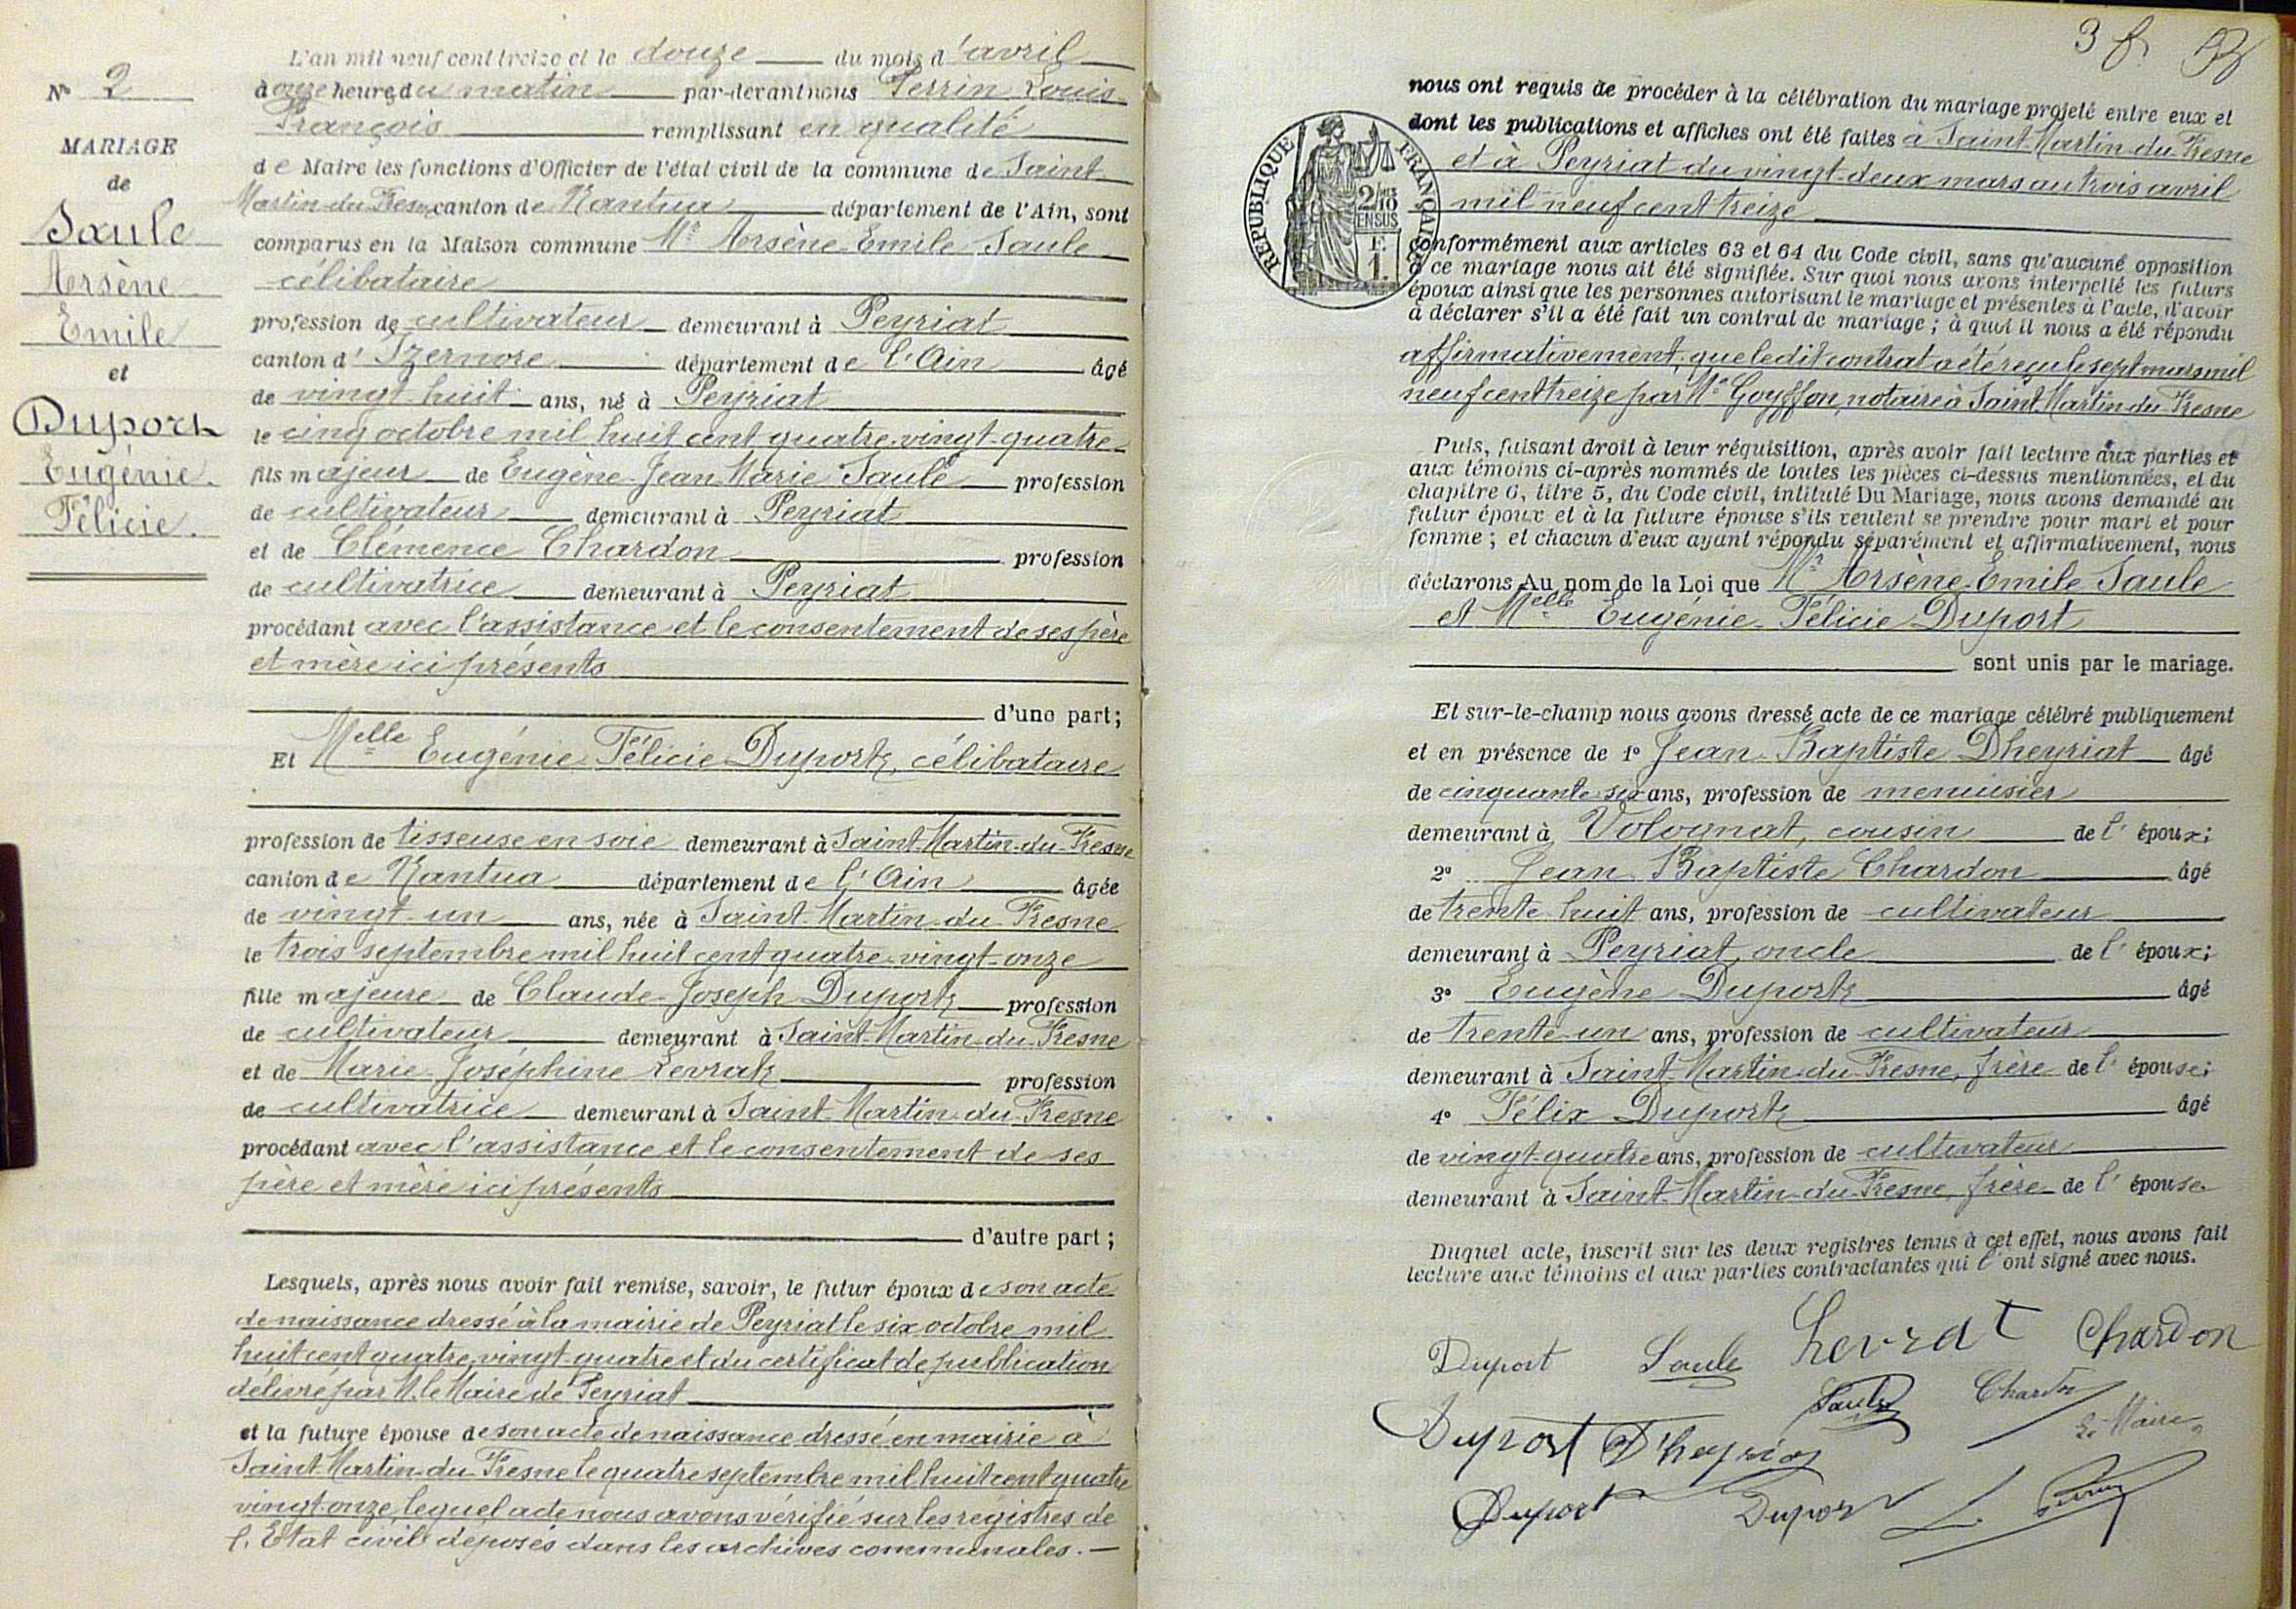 N° 2
MARIAGE
de
Saule
Arsène
Emile
et
Duport
Eugénie
Félicie.
L'an mil neuf cent treize et le douze du mois d'avril
à onze heures du matin par-devant nous Perrin Louis
François remplissant en qualité
de Maire les fonctions d'Officier de l'état civil de la commune de Saint
Martin-du-Fresne canton de Nantua département de l'Ain, sont
comparus en la Maison commune Mr Arsène-Emile Saule
célibataire
profession de cultivateur demeurant à Peyriat
canton d'Izernore département de l'Ain âgé
de vingt-huit ans, né à Peyriat
le cinq octobre mil huit cent quatre-vingt-quatre
fils majeur de Eugène-Jean-Marie Saule profession
de cultivateur demeurant à Peyriat
et de Clémence Chardon profession
de cultivatrice demeurant à Peyriat
procédant avec l'assistance et le consentement de ses père
et mère ici présents
d'une part;
Et Melle Eugénie-Félicie Duport, célibataire
profession de tisseuse en soie demeurant à Saint-Martin-du-Fresne
canton de Nantua département de l'Ain âgée
de vingt-un ans, née à Saint-Martin-du-Fresne
le trois septembre mil huit cent quatre-vingt-onze
fille majeure de Claude-Joseph Duport profession
de cultivateur demeurant à Saint-Martin-du-Fresne
et de Marie-Joséphine Levrat profession
de cultivatrice demeurant à Saint-Martin-du-Fresne
procédant avec l'assistance et le consentement de ses
père et mère ici présents
d'autre part;
Lesquels, après nous avoir fait remise, savoir, le futur époux de son acte
de naissance dressé à la mairie de Peyriat le six octobre mil
huit cent quatre-vingt-quatre et du certificat de publication
délivré par M. le Maire de Peyriat
et la future épouse de son acte de naissance dressé en mairie à
Saint-Martin-du-Fresne le quatre septembre mil huit cent quatre
vingt-onze, lequel acte nous avons vérifié sur les registres de
l'Etat civil déposés dans les archives communales.
3 f.
nous ont requis de procéder à la célébration du mariage projeté entre eux et
dont les publications et affiches ont été faites à Saint-Martin-du-Fresne
et à Peyriat du vingt-deux mars au trois avril
mil neuf cent treize
RÉPUBLIQUE FRANÇAISE
2/10
EN SUS
F.
1.
conformément aux articles 63 et 64 du Code civil, sans qu'aucune opposition
à ce mariage nous ait été signifiée. Sur quoi nous avons interpellé les futurs
époux ainsi que les personnes autorisant le mariage et présentes à l'acte, d'avoir
à déclarer s'il a été fait un contrat de mariage ; à quoi il nous a été répondu
affirmativement, que ledit contrat a été reçu le sept mars mil
neuf cent treize par Me Goyffon, notaire à Saint-Martin-du-Fresne
Puis, faisant droit à leur réquisition, après avoir fait lecture aux parties et
aux témoins ci-après nommés de toutes les pièces ci-dessus mentionnées, et du
chapitre 6, titre 5, du Code civil, intitulé Du Mariage, nous avons demandé au
futur époux et à la future épouse s'ils veulent se prendre pour mari et pour
femme ; et chacun d'eux ayant répondu séparément et affirmativement, nous
déclarons Au nom de la Loi que Mr Arsène-Emile Saule
et Melle Eugénie-Félicie Duport
sont unis par le mariage.
Et sur-le-champ nous avons dressé acte de ce mariage célébré publiquement
et en présence de 1° Jean-Baptiste Dheyriat âgé
de cinquante-six ans, profession de menuisier
demeurant à Volognat, cousin de l'époux;
2° Jean-Baptiste Chardon âgé
de trente-huit ans, profession de cultivateur
demeurant à Peyriat, oncle de l'époux;
3° Eugène Duport âgé
de trente-un ans, profession de cultivateur
demeurant à Saint-Martin-du-Fresne, frère de l'épouse;
4° Félix Duport âgé
de vingt-quatre ans, profession de cultivateur
demeurant à Saint-Martin-du-Fresne, frère de l'épouse
Duquel acte, inscrit sur les deux registres tenus à cet effet, nous avons fait
lecture aux témoins et aux parties contractantes qui l'ont signé avec nous.
Duport Saule Levrat Chardon
Saule Chardon
Duport D'heyriat Le Maire,
Duport Duport L. Perrin